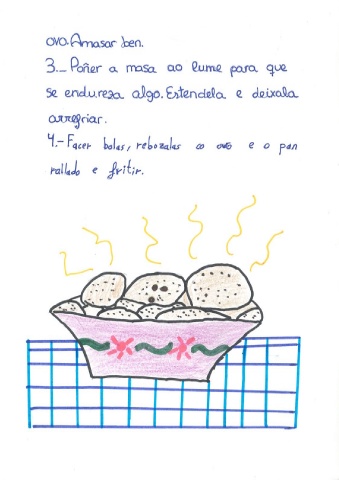 ovo. Amasar ben.
3._ Poñer a masa ao lume para que
se endureza algo. Estendela e deixala
arrefriar.
4.- Facer bolas, rebozalas co ovo e o pan
rallado e fritir.